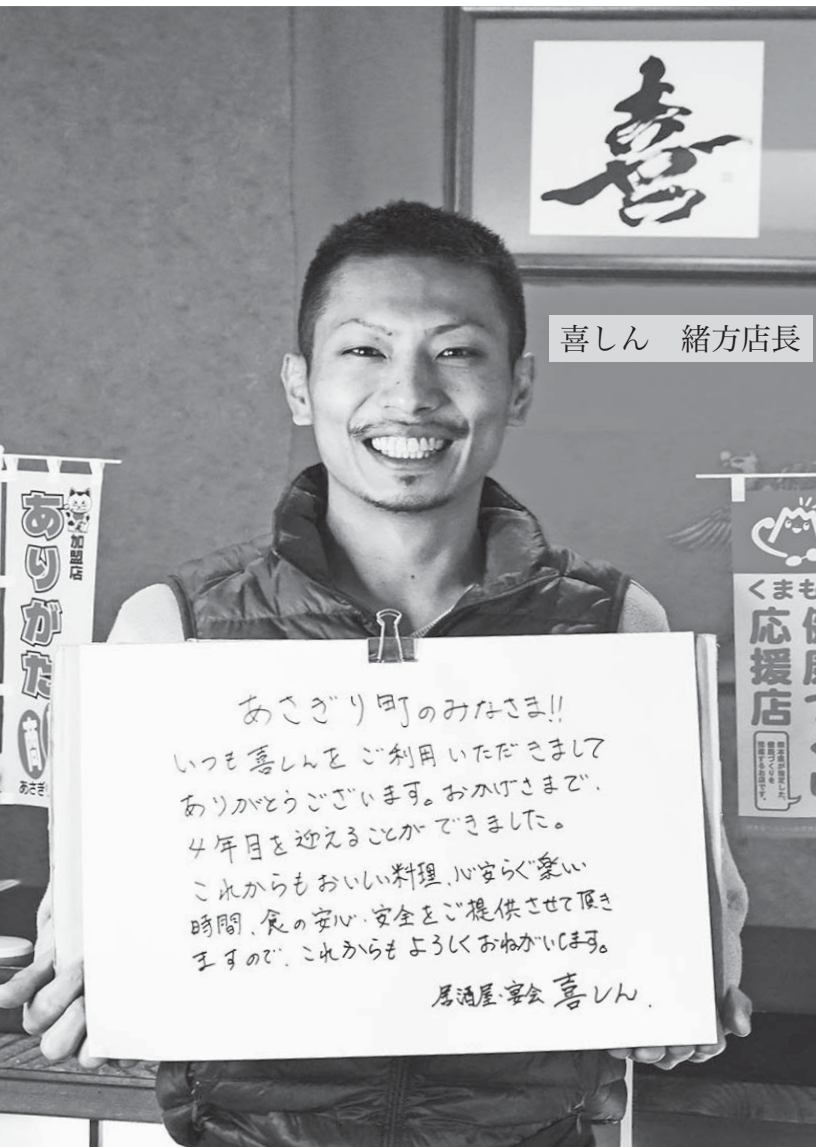 喜
喜しん　緒方店長
加盟店
ありがた
商
あさぎり
くまも
応援店
熊本県が指定した、
健康づくりを
推進するお店です。
あさぎり町のみなさま!!
いつも喜しんをご利用いただきまして
ありがとうございます。おかげさまで、
4年目を迎えることができました。
これからもおいしい料理、心安らぐ楽しい
時間、食の安心・安全をご提供させて頂き
ますので、これからもよろしくおねがいします。
居酒屋・宴会 喜しん.